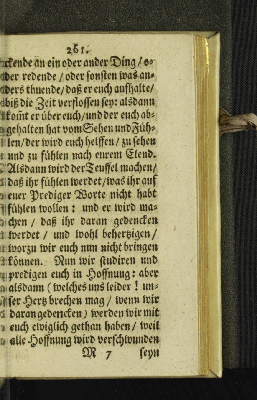 261.
ckende an ein oder ander Ding / o-
der redende / oder sonsten was an-
ders thuende, daß er euch aufhalte /
biß die Zeit verflossen sey: alsdann
kom̃t er über euch / und der euch ab-
gehalten hat vom Sehen und Füh-
len / der wird euch helffen / zu sehen
und zu fühlen nach eurem Elend.
Alsdann wird der Teuffel machen /
daß ihr fühlen werdet / was ihr auf
euer Prediger Worte nicht habt
fühlen wollen: und er wird ma-
chen / daß ihr daran gedencken
werdet / und wohl behertzigen /
worzu wir euch nun nicht bringen
können. Nun wir studiren und
predigen euch in Hoffnung: aber
alsdann (welches uns leider! un-
ser Hertz brechen mag / wenn wir
daran gedencken) werden wir mit
euch ewiglich gethan haben / weil
alle Hoffnung wird verschwunden
M 7 seyn